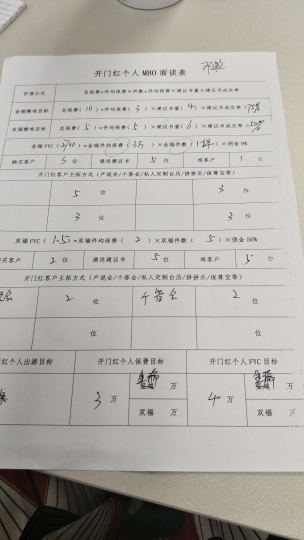 开门红个人 MBO 面谈表
价值公式 总保费=件均保费×件数=件均保费×建议书量×建议书成交率
金瑞精准目标 总保费(10)=件均保费(3)×建议书量(4)×建议书成交率(75%)
双福精准目标 总保费(5)=件均保费(5)×建议书量(6)×建议书成交率(50%)
金瑞 FYC()=金瑞件均保费(3.5)×金瑞件数()×佣金9%
购买客户 3位 递送建议书 5位 准客户 位
开门红客户主拓方式(产说会/个答会/私人定制台历/拼拼乐/保尊宝等)
5 位 3 位
3 位 3 位
双福 FYC(1.5)=双福件均保费(2)×双福件数(5)×佣金50%
买客户 2位 递送建议书 5位 准客户 5位
开门红客户主拓方式(产说会/个答会/私人定制台历/拼拼乐/保尊宝等)
会 2 位 个答会 2 位
位 位
红个人出游目标 开门红个人保费目标 开门红个人 FYC 目标
3 万 万 4 万 万
双福 万 双福 万